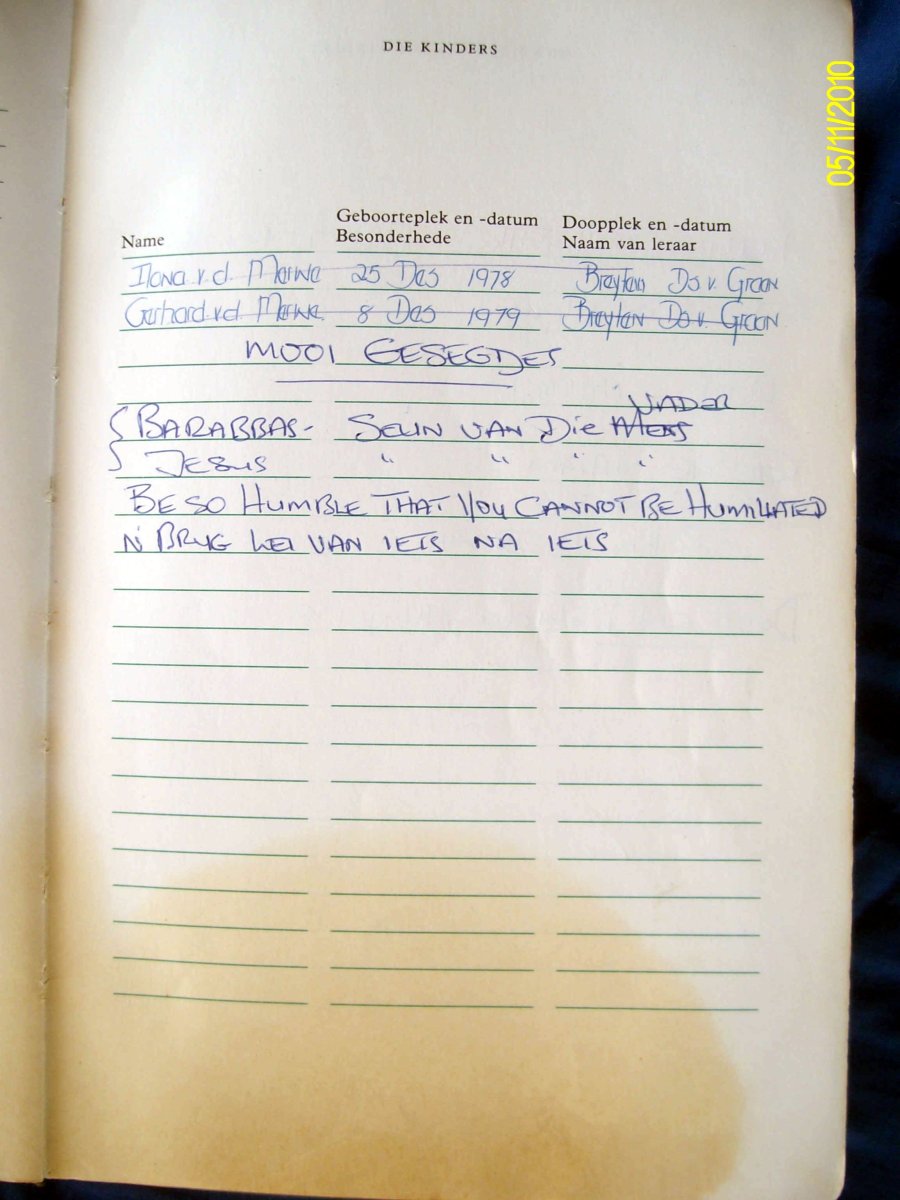 DIE KINDERS
05/11/2010
Name
Geboorteplek en -datum
Besonderhede
Doopplek en -datum
Naam van leraar
Ilana v.d. Merwe 25 Des 1978 Breyten Ds v. Graan
Gerhard v.d. Merwe. 8 Des 1979 Breyten Ds v. Graan
MOOI GESEGDES
VADER
{ BARABBAS - SEUN VAN DIE MENS
} JESUS " " " "
BE SO HUMBLE THAT YOU CANNOT BE HUMILIATED
N' BRUG LEI VAN IETS NA IETS